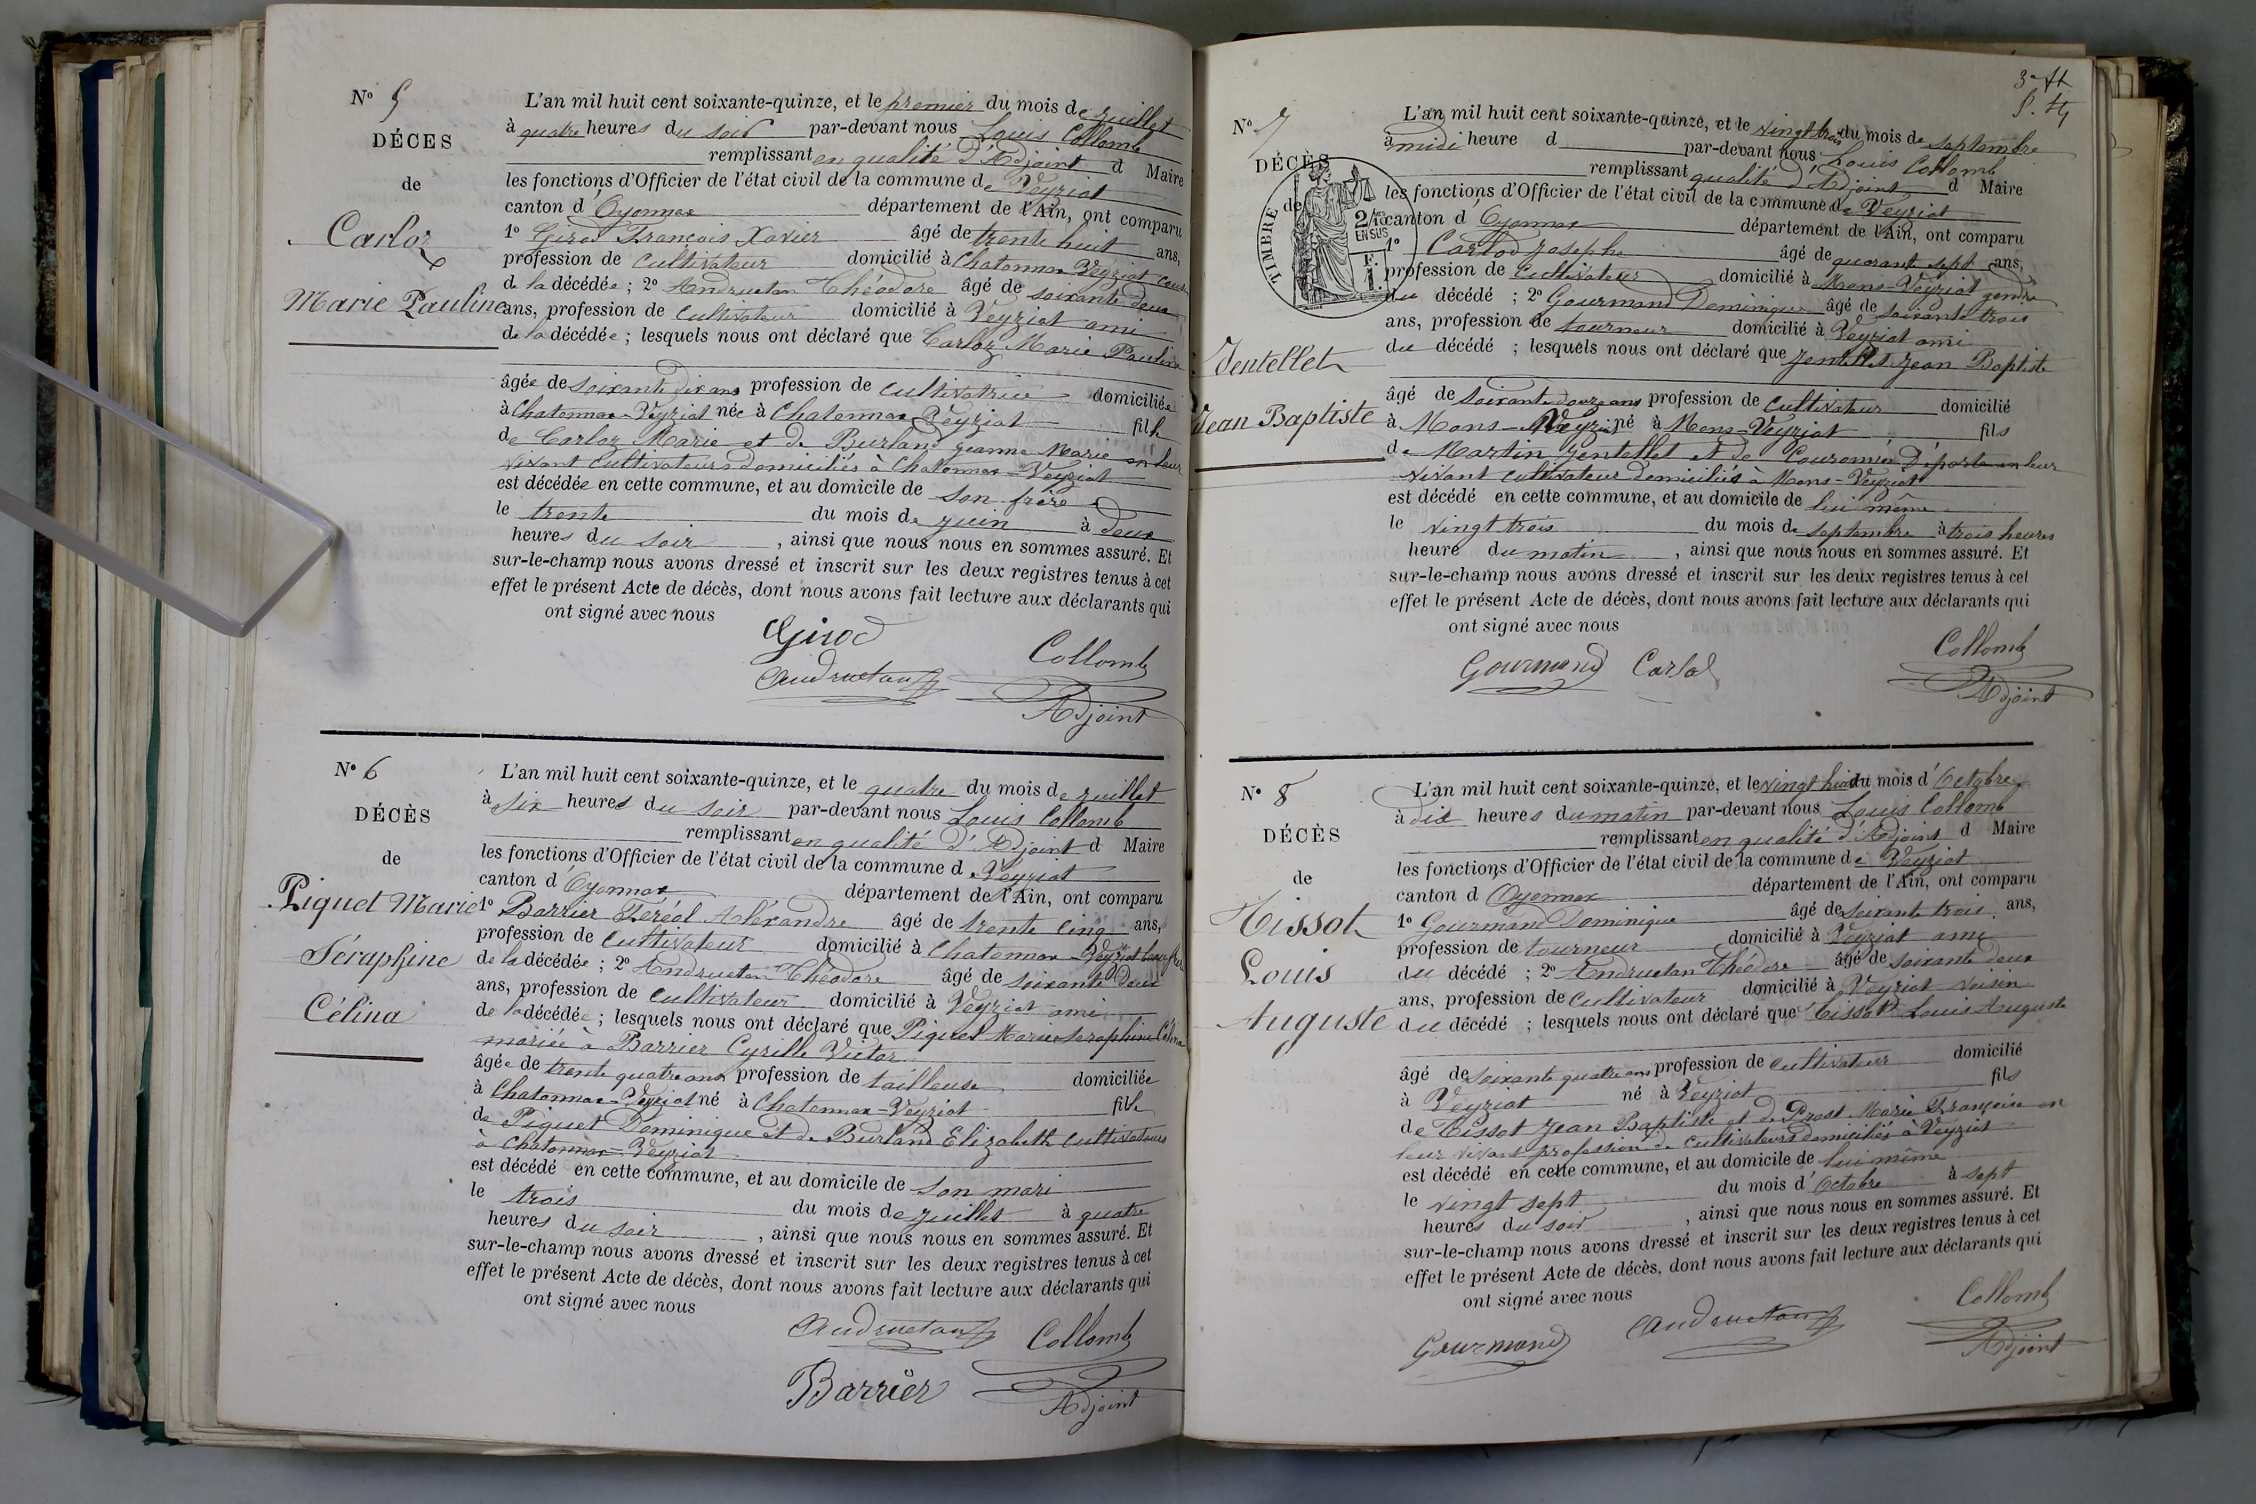 N° 5
DÉCES
de
Carloz
Marie Pauline
L'an mil huit cent soixante-quinze, et le premier du mois de juillet
à quatre heures du soir par-devant nous Louis Collomb
remplissant en qualité d'Adjoint d Maire
les fonctions d'Officier de l'état civil de la commune de Veyziat
canton d'Oyonnax département de l'Ain, ont comparu
1° Girod François Xavier âgé de trente huit ans,
profession de cultivateur domicilié à Chatonnax Veyziat
de la décédée ; 2° Andruetan Théodore âgé de soixante deux
ans, profession de cultivateur domicilié à Veyziat ami
de la décédée ; lesquels nous ont déclaré que Carloz Marie Pauline
âgée de soixante dix ans profession de cultivatrice domiciliée
à Chatonnax-Veyziat née à Chatonnax Veyziat fille
de Carloz Marie et de Burland Jeanne Marie en leur
vivant cultivateurs domiciliés à Chatonnax-Veyziat
est décédée en cette commune, et au domicile de son frère
le trente du mois de juin à deux
heures du soir , ainsi que nous nous en sommes assuré. Et
sur-le-champ nous avons dressé et inscrit sur les deux registres tenus à cet
effet le présent Acte de décès, dont nous avons fait lecture aux déclarants qui
ont signé avec nous
Girod
Collomb
Andruetan
Adjoint
N° 6
DÉCÈS
de
Piquet Marie
Séraphine
Célina
L'an mil huit cent soixante-quinze, et le quatre du mois de juillet
à six heures du soir par-devant nous Louis Collomb
remplissant en qualité d'Adjoint d Maire
les fonctions d'Officier de l'état civil de la commune d Veyziat
canton d'Oyonnax département de l'Ain, ont comparu
1° Barrier Féréol Aléxandre âgé de trente cinq ans,
profession de cultivateur domicilié à Chatonnax-Veyziat beau frère
de la décédée ; 2° Andruetan Théodore âgé de soixante deux
ans, profession de cultivateur domicilié à Veyziat ami
de la décédée ; lesquels nous ont déclaré que Piquet Marie Séraphine Célina
mariée à Barrier Cyrille Victor
âgée de trente quatre ans profession de tailleuse domiciliée
à Chatonnax-Veyziat né à Chatonnax-Veyziat fille
de Piquet Dominique et de Burland Elizabeth cultivateurs
à Chatonnax-Veyziat
est décédé en cette commune, et au domicile de son mari
le trois du mois de juillet à quatre
heures du soir , ainsi que nous nous en sommes assuré. Et
sur-le-champ nous avons dressé et inscrit sur les deux registres tenus à cet
effet le présent Acte de décès, dont nous avons fait lecture aux déclarants qui
ont signé avec nous
Andruetan Collomb
Barrier
Adjoint
N° 7
DÉCÈS
de
TIMBRE
2/10es
EN SUS
F.
1.
Jentellet
Jean Baptiste
L'an mil huit cent soixante-quinze, et le vingt trois du mois de septembre
à midi heure d par-devant nous Louis Collomb
remplissant qualité d'Adjoint d Maire
les fonctions d'Officier de l'état civil de la commune de Veyziat
canton d'Oyonnax département de l'Ain, ont comparu
1° Carlod Josephe âgé de quarante sept ans,
profession de cultivateur domicilié à Mons-Veyziat gendre
du décédé ; 2° Gourmand Dominique âgé de soixante trois
ans, profession de tourneur domicilié à Veyziat ami
du décédé ; lesquels nous ont déclaré que Jentellet Jean Baptiste
âgé de soixante douze ans profession de cultivateur domicilié
à Mons-Veyziat né à Mons-Veyziat fils
de Martin Jentellet et de Déporte en leur
vivant cultivateur domiciliés à Mons-Veyziat
est décédé en cette commune, et au domicile de lui même
le vingt trois du mois de septembre à trois heures
heure du matin , ainsi que nous nous en sommes assuré. Et
sur-le-champ nous avons dressé et inscrit sur les deux registres tenus à cet
effet le présent Acte de décès, dont nous avons fait lecture aux déclarants qui
ont signé avec nous
Collomb
Gourmand Carlod
Adjoint
N° 8
DÉCÈS
de
Tissot
Louis
Auguste
L'an mil huit cent soixante-quinze, et le vingt huit du mois d'Octobre
à dix heures du matin par-devant nous Louis Collomb
remplissant en qualité d'Adjoint d Maire
les fonctions d'Officier de l'état civil de la commune de Veyziat
canton d Oyonnax département de l'Ain, ont comparu
1° Gourmand Dominique âgé de soixante trois ans,
profession de tourneur domicilié à Veyziat ami
du décédé ; 2° Andruetan Théodore âgé de soixante deux
ans, profession de cultivateur domicilié à Veyziat voisin
du décédé ; lesquels nous ont déclaré que Tissot Louis Auguste
âgé de soixante quatre ans profession de cultivateur domicilié
à Veyziat né à Veyziat fils
de Tissot Jean Baptiste et de Prost Marie Françoise en
leur vivant profession de cultivateurs domiciliés à Veyziat
est décédé en cette commune, et au domicile de lui même
le vingt sept du mois d'Octobre à sept
heures du soir , ainsi que nous nous en sommes assuré. Et
sur-le-champ nous avons dressé et inscrit sur les deux registres tenus à cet
effet le présent Acte de décès, dont nous avons fait lecture aux déclarants qui
ont signé avec nous
Collomb
Gourmand Andruetan
Adjoint